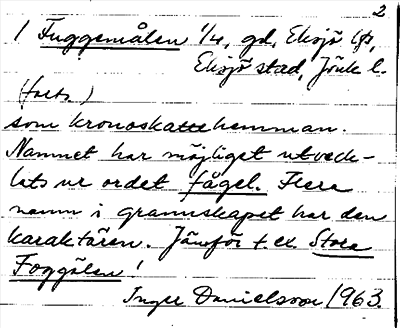 2
1 Fuggemålen 1/4, gd, Eksjö lfs,
Eksjö stad, Jönk l.
(forts.)
som kronoskattehemman.
Namnet har möjliget utveck-
lats ur ordet fågel. Flera
namn i grannskapet har den
karaktären. Jämför t. ex. Stora
Foggålen!
Inger Danielsson 1963.